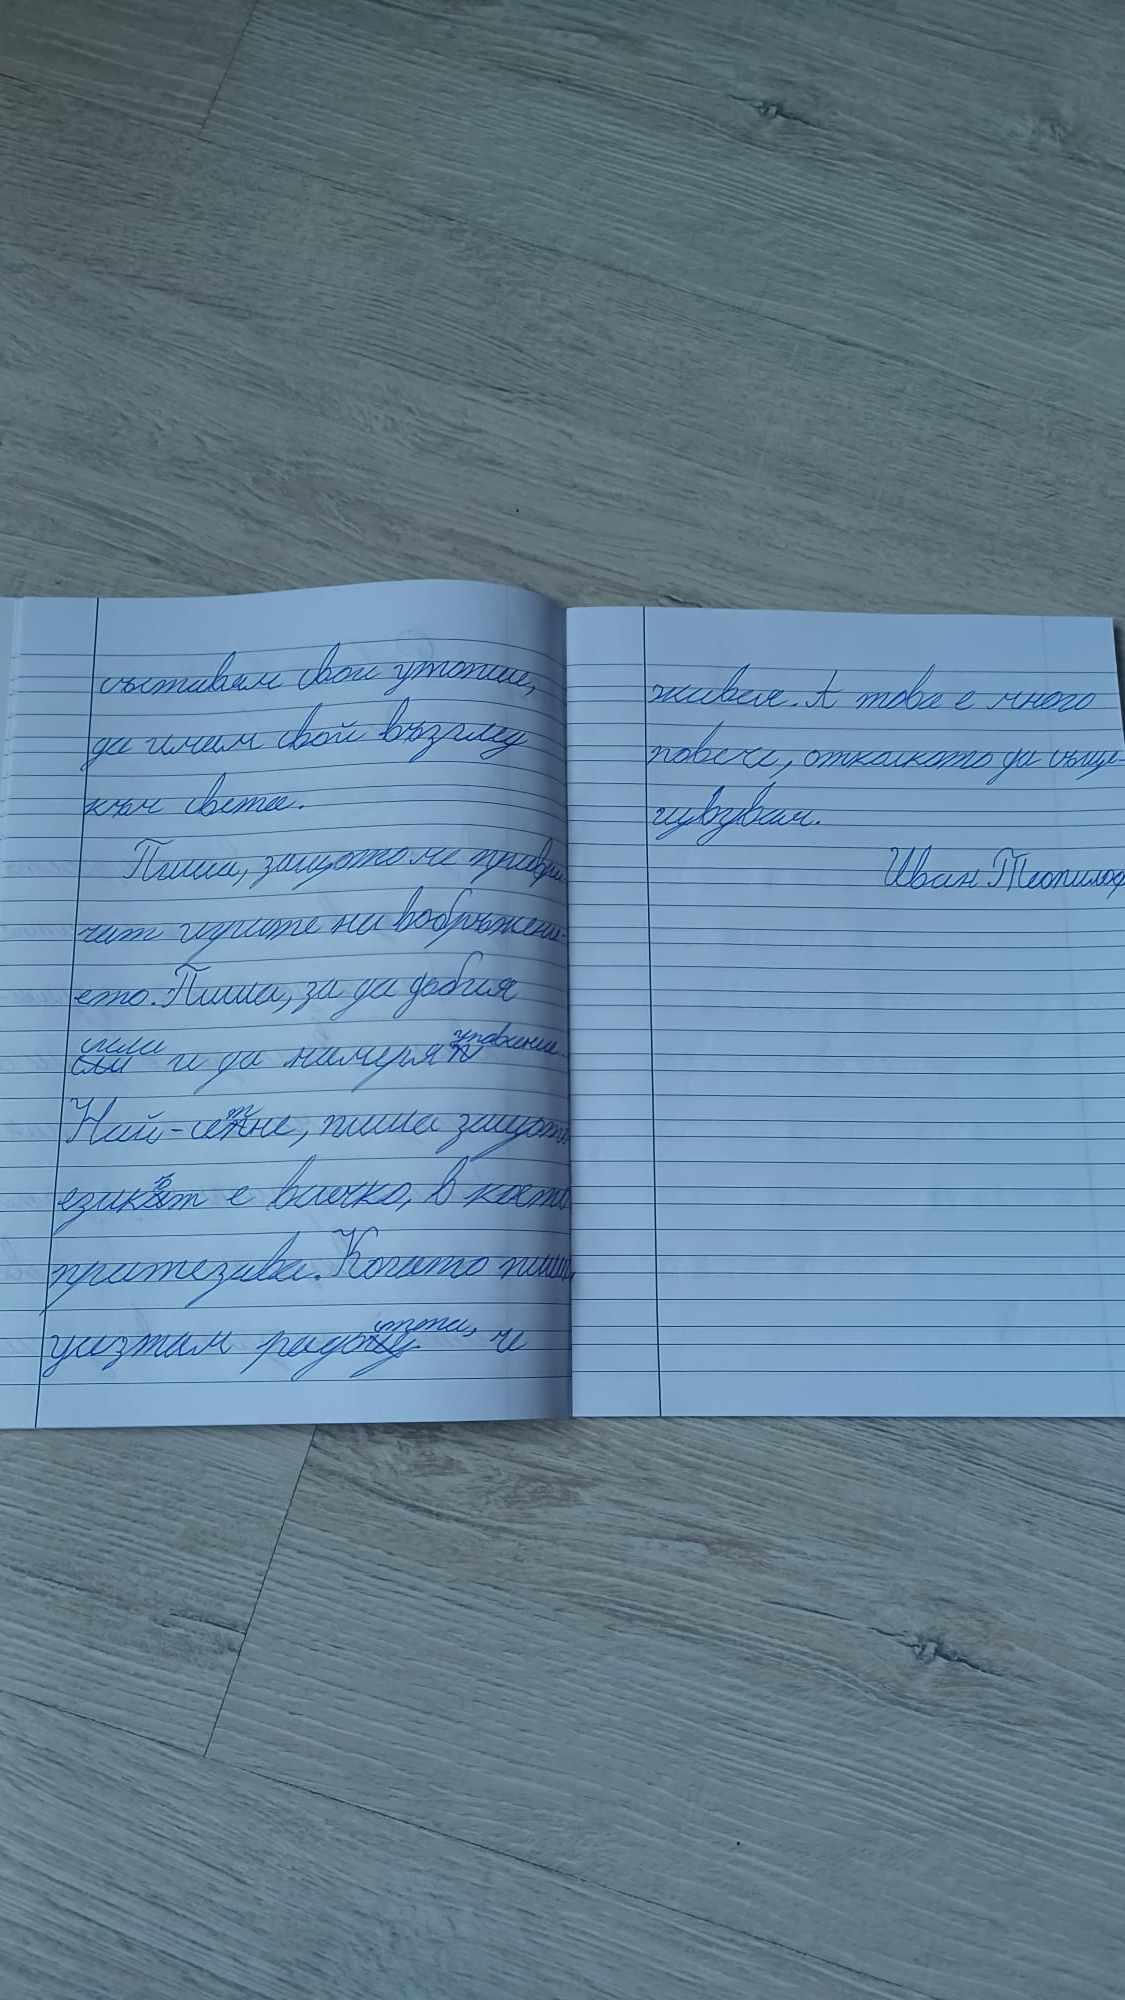 съставям свои утопии,
да имам свой възглед
към света.
Пиша, защото ме привли-
чат игрите на въображени-
ето. Пиша, за да добия
сили и да намеря упование.
Най-сетне, пиша защото
езикът е всичко, в което
притезава. Когато пиша,
усозтам радостта, че
живея. А това е много
повече, отколкото да съще-
цувзувам.
Иван Теопилоф